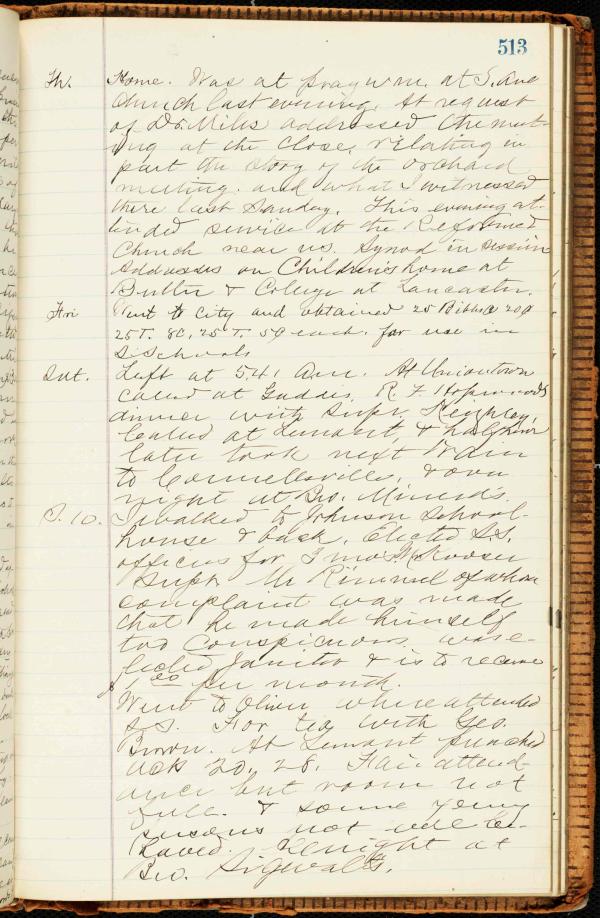 513
Th. Home. Was at pray'r m. at S. Ave
Church last evening. At request
of Dr. Miles addressed the meet-
ing at the close, relating in
part the story of the orchard
meeting. and what I witnessed
there last Sunday. This evening at-
tended service at the Reformed
Church near us. Synod in session
Addresses on Childrens home at
Butler & College at Lancaster.
Fri Went to City and obtained 25 Bibles 20¢
25 T. 8¢, 25 T. 5¢ each. for use in
S Schools
Sat. Left at 5.41 A.m. At Uniontown
called at Gaddis, R. F. Hopwoods
dinner with Supt.
Called at Lemont, & half hour
later took next train
to Connellsville, & over
night at Bro. Minerd's.
S. 10. I walked to Johnson School-
house & back. Elected S.S.
officers for 3 mos.
Supt. Mr Rimmel of whom
complaint was made
that he made himself
too conspicuous was e-
lected Janitor & is to receive
per month.
Went to Oliver where attended
S.S. For tea with Geo.
Brown. At Lemont preached
Acts 20, 28. Fair attend-
ance but room not
full. & some young
persons not well be-
haved. night at
Bro. Sigwalts.